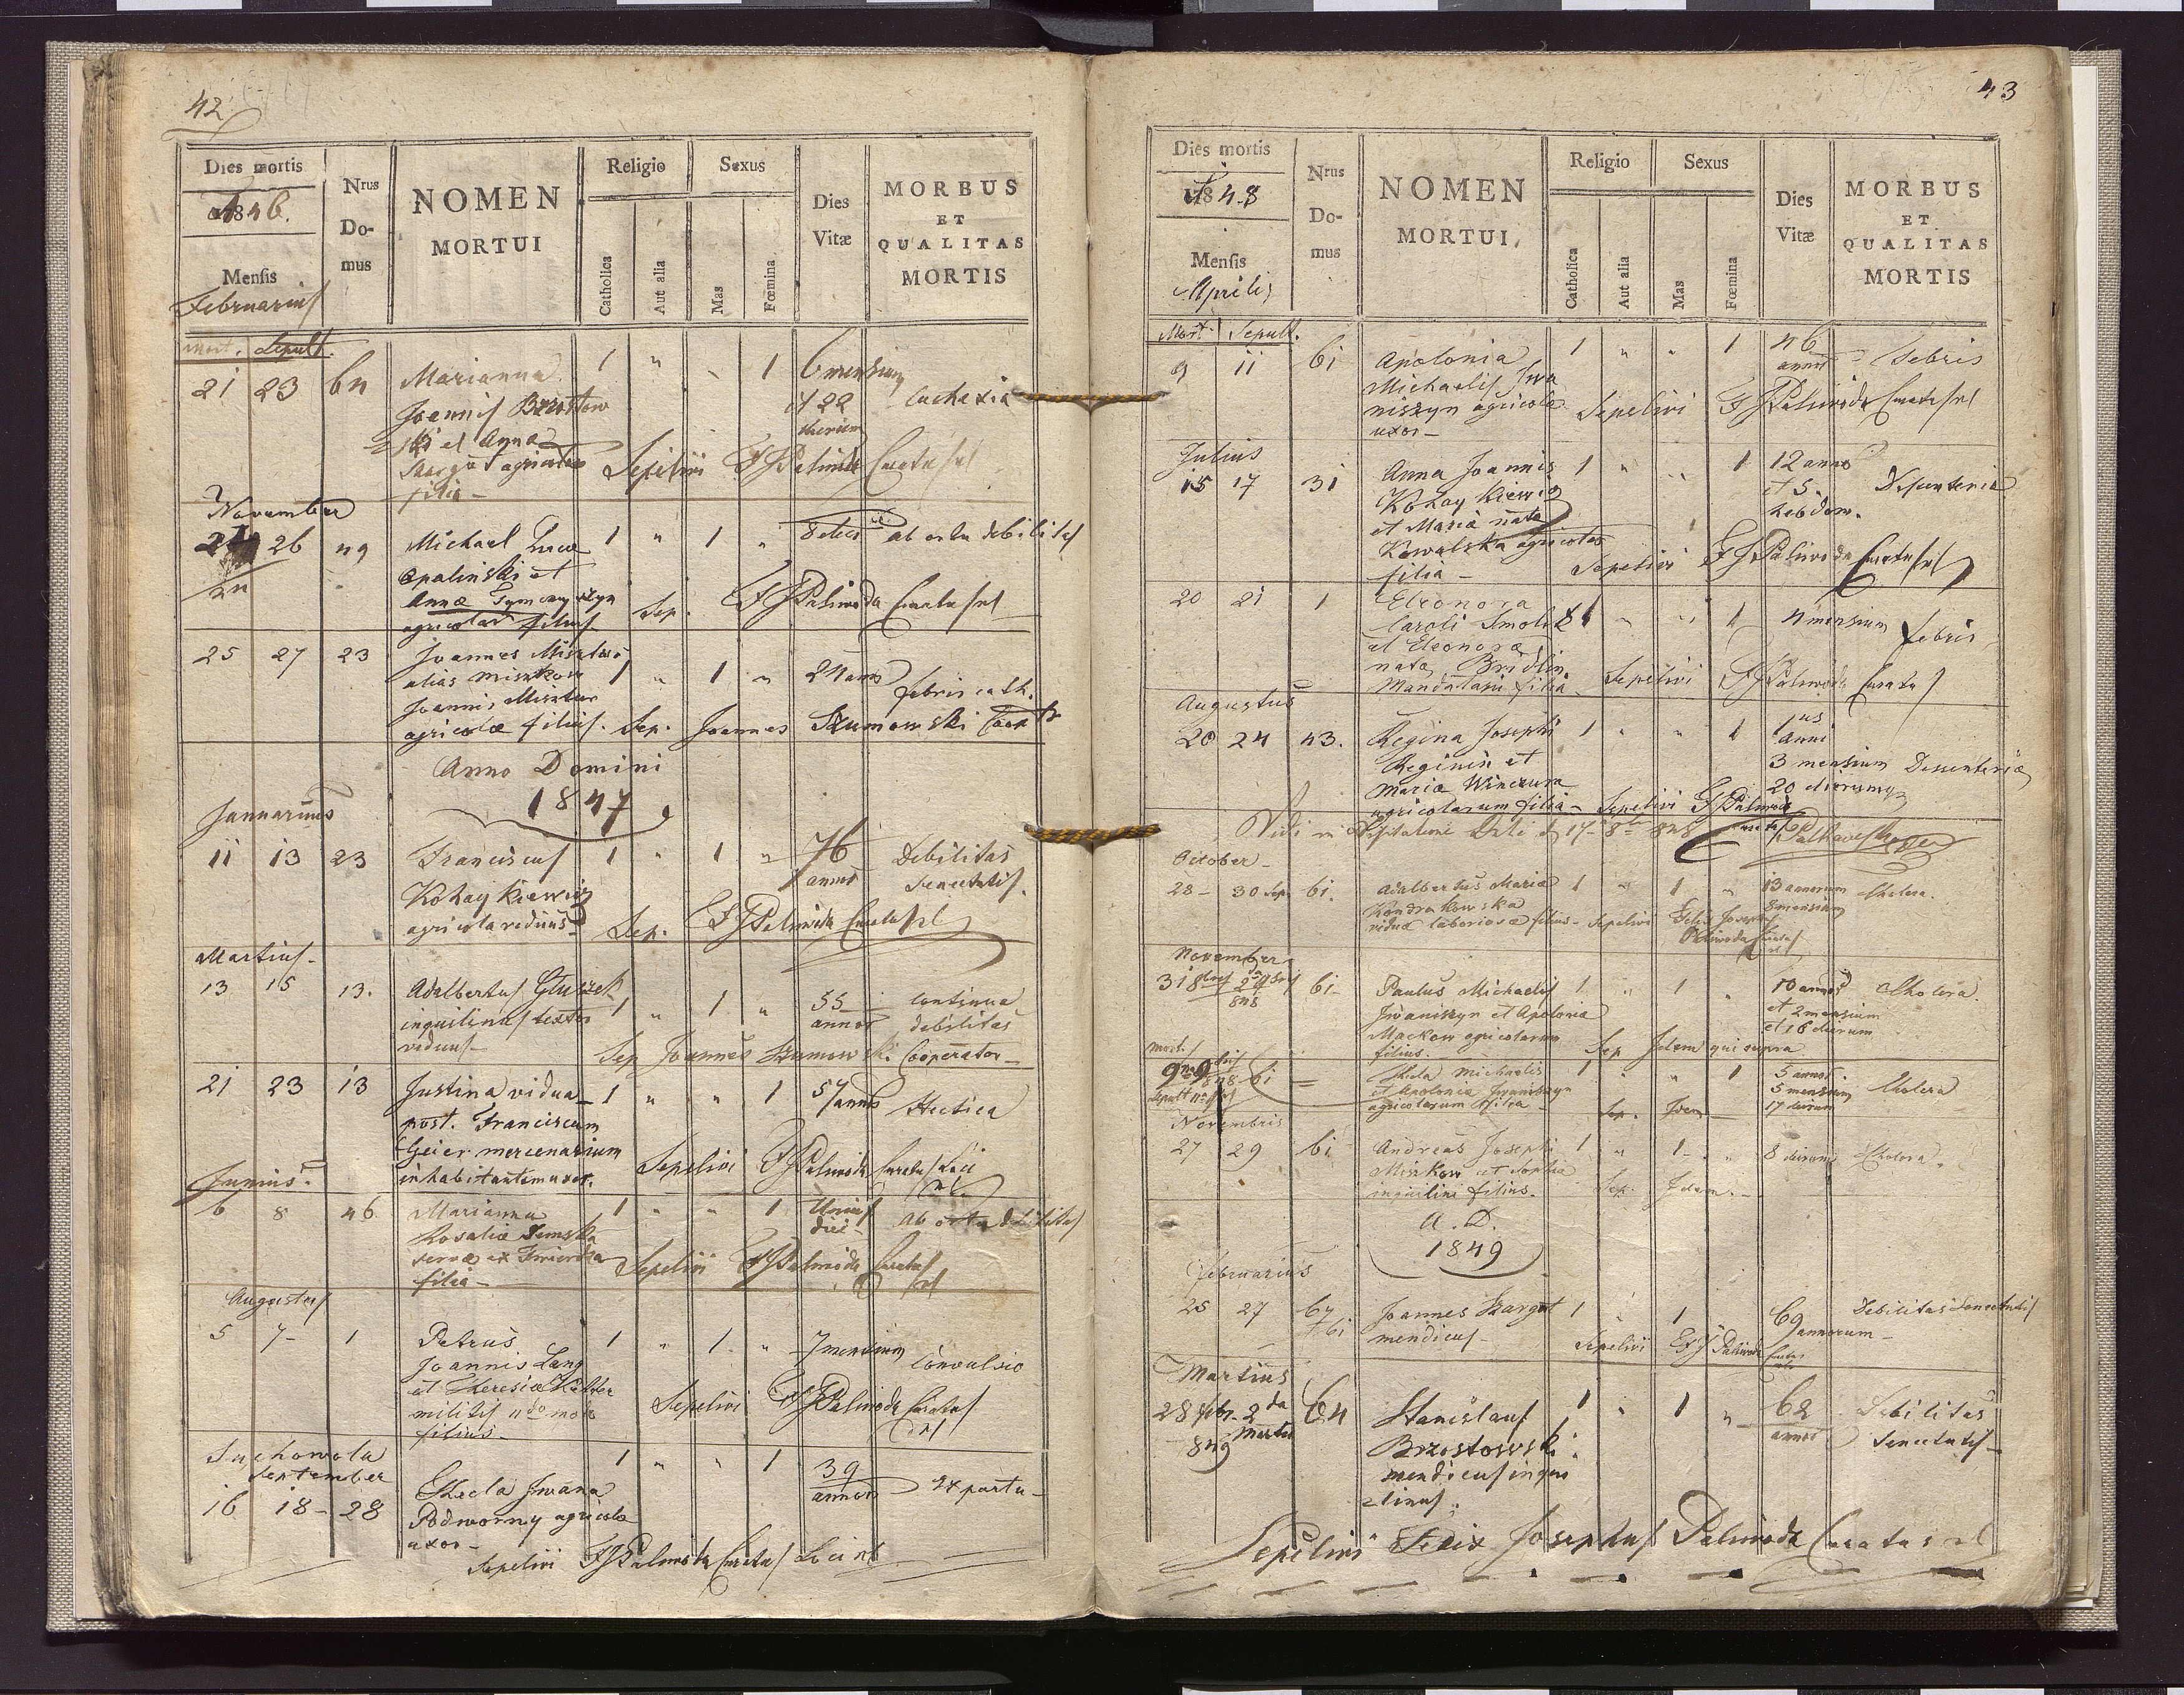 42
Dies mortis
1846.
Mensis
Februarius
Nrus
Do-
mus
NOMEN
MORTUI
Religio
Catholica
Aut alia
Sexus
Mas
Fœmina
Dies
Vitæ
MORBUS
ET
QUALITAS
MORTIS
Mort. Sepult.
21 23 64 Marianna 1 " " 1 6 mensium
Joannis Brzostow
ski et Anna
et 22
dierum
Cachexia
Szargut agricolae
filia - Sepelivi FJPalivoda Curatus rl
November
24 26 49 Michael Lucae 1 " 1 " 8 diei ab ortu debilitas
Opalinski et
Anna Symczyszyn
agricolae filius Sep. FJPalivoda Curatus rl
25 27 23 Joannes Misztur
alias Miszkow 1 " 1 " 24 ann febris cath.
Joannis Misztur
agricolae filius. Sep. Joannes Szumowski Coop
Anno Domini
1847
Januarius
11 13 23 Franciscus 1 " 1 " 76 annor Debilitas
Kohaykiewicz Senectutis.
agricola viduus Sep. FJPalivoda Curatus rl
Martius
13 15 13. Adalbertus Gluszek
inquilinus textor 1 " 1 " 55 annor continua
debilitas
viduus Sep Joannes Szumowski Cooperator
21 23 13 Justina vidua 1 " " 1 57 annor Hectica
post. Franciscum
Geier mercenarium
inhabitantem uxor. Sepelivi FJPalivoda Curatus Loci
Junius
6 8 46 Marianna 1 " " 1 Unius
diei Ab ortu debilitas
Rosaliae
servae ex
filia - Sepelivi FJPalivoda Curatus rl
Augustus
5 7 1 Petrus 1 " 1 " 7 mensium Convulsio
Joannis Lang
et Theresiae
militis
filius - Sepelivi FJPalivoda Curatus rl
Suchowola
September
16 18 28 Thecla Iwana 1 " " 1 39 annor ex partu
Podworny agricolae
uxor -
Sepelivi FJPalivoda Curatus Loci
43
Dies mortis
1848
Mensis
Aprilis
Nrus
Do-
mus
NOMEN
MORTUI
Religio
Catholica
Aut alia
Sexus
Mas
Fœmina
Dies
Vitæ
MORBUS
ET
QUALITAS
MORTIS
Mort. Sepult.
9 11 61 Apolonia 1 " " 1 46 annor Febris
Michaelis Iwa
niszyn agricolae
uxor - Sepelivi FJPalivoda Curatus rl
Julius
15 17 31 Anna Joannis 1 " " 1 12 anno
Kohaykiewicz et 5. Disenteria
et Maria nata hebdom.
Kowalska agricolae
filia - Sepelivi FJPalivoda Curatus rl
20 21 1 Eleonora
Caroli Smolik 1 " " 1 4 mensium febris
et Eleonora
nata Bridlin
Mandatarii filia Sepelivi FJPalivoda Curatus
Augustus
20 24 43. Regina Josephi 1 " " 1 1us anni
Reginin et 3 mensium Dissenteria
Maria Winczura 20 dierum
agricolarum filia - Sepelivi FJPalivoda
Vidi in 17 8br 848
October
28 30 Sep. 61. Adalbertus Maria 1 " 1 " 13 annorum Cholera
Kondrakowska 8 mensium
viduae laboriosae filius - Sepelivi Felix Joseph
Palivoda Curatus
November
31 8bris 2 9bris
848 61 Paulus Michaelis 1 " 1 " 10 annor Cholera.
Iwaniszyn et Apolonia et 2 mensium
Mackow agricolarum et 16 dierum
filius. Sep Idem qui supra
Mort.
9 9bris
848 61 Thecla Michaelis 1 " " 1 5 annor.
et Apolonia Iwaniszyn 5 mensium Cholera
agricolarum filia Sep. Idem 17 dierum
Novembris
27 29 61 Andreas Josephi 1 " 1 " 8 dierum Cholera.
Miszkow et Sophia
inquilini filius. Sep. Idem.
A. D.
1849
Februarius
25 27 67
/61 Joannes Szargut 1 " 1 69 annorum Debilitas Senectutis
mendicus - Sepelivi FJPalivoda
Martius
28 febr. 2da
Martii
849 64 Stanislaus 1 " 1 " 62 annor Debilitas
Brzostowski Senectutis
mendicus inqui
linus.
Sepelivi Felix Josephus Palivoda Curatus rl